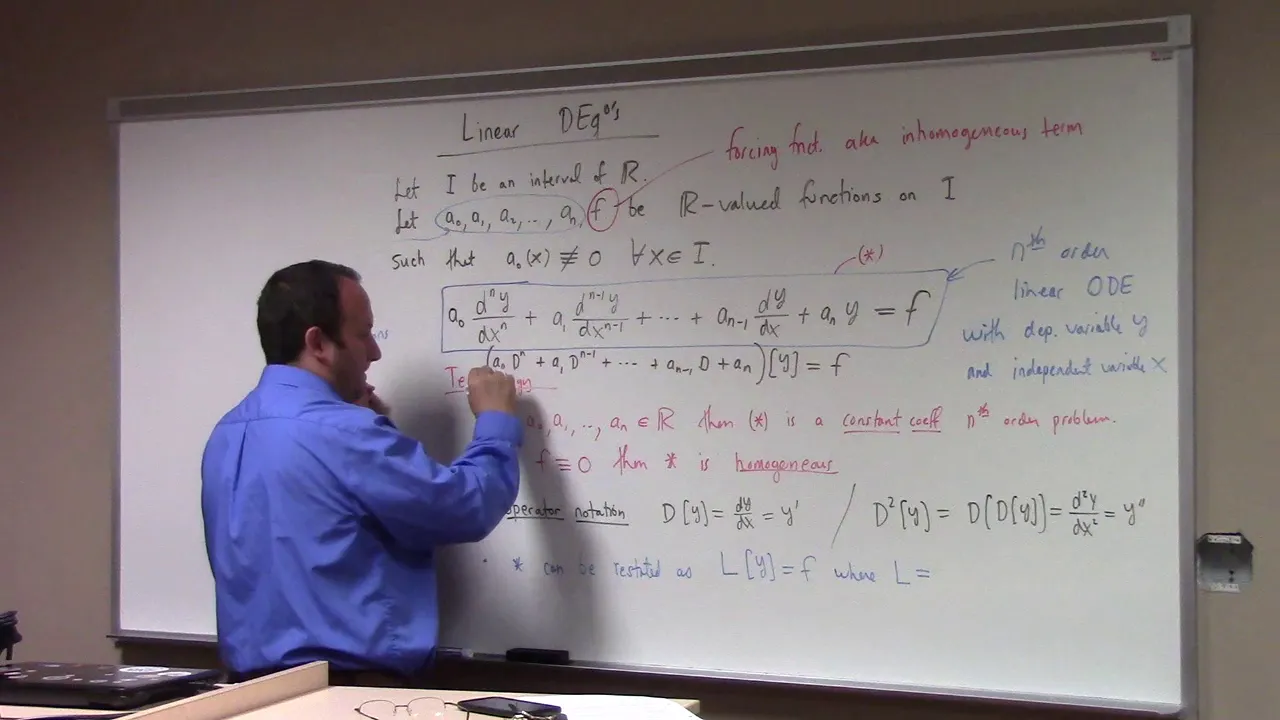 Linear DEqⁿ's
forcing fnct. aka inhomogeneous term
Let I be an interval of ℝ.
Let a₀, a₁, a₂, ..., aₙ, f be ℝ-valued functions on I
such that a₀(x) ≢ 0 ∀x ∈ I.
(*)
a₀ dⁿy/dxⁿ + a₁ dⁿ⁻¹y/dxⁿ⁻¹ + ··· + aₙ₋₁ dy/dx + aₙ y = f
nth order
linear ODE
with dep. variable y
and independent variable x
(a₀Dⁿ + a₁Dⁿ⁻¹ + ··· + aₙ₋₁D + aₙ)[y] = f
a₀, a₁, ..., aₙ ∈ ℝ then (*) is a constant coeff nth order problem.
f ≡ 0 then * is homogeneous
operator notation D[y] = dy/dx = y' / D²[y] = D[D[y]] = d²y/dx² = y''
· * can be restated as L[y] = f where L =